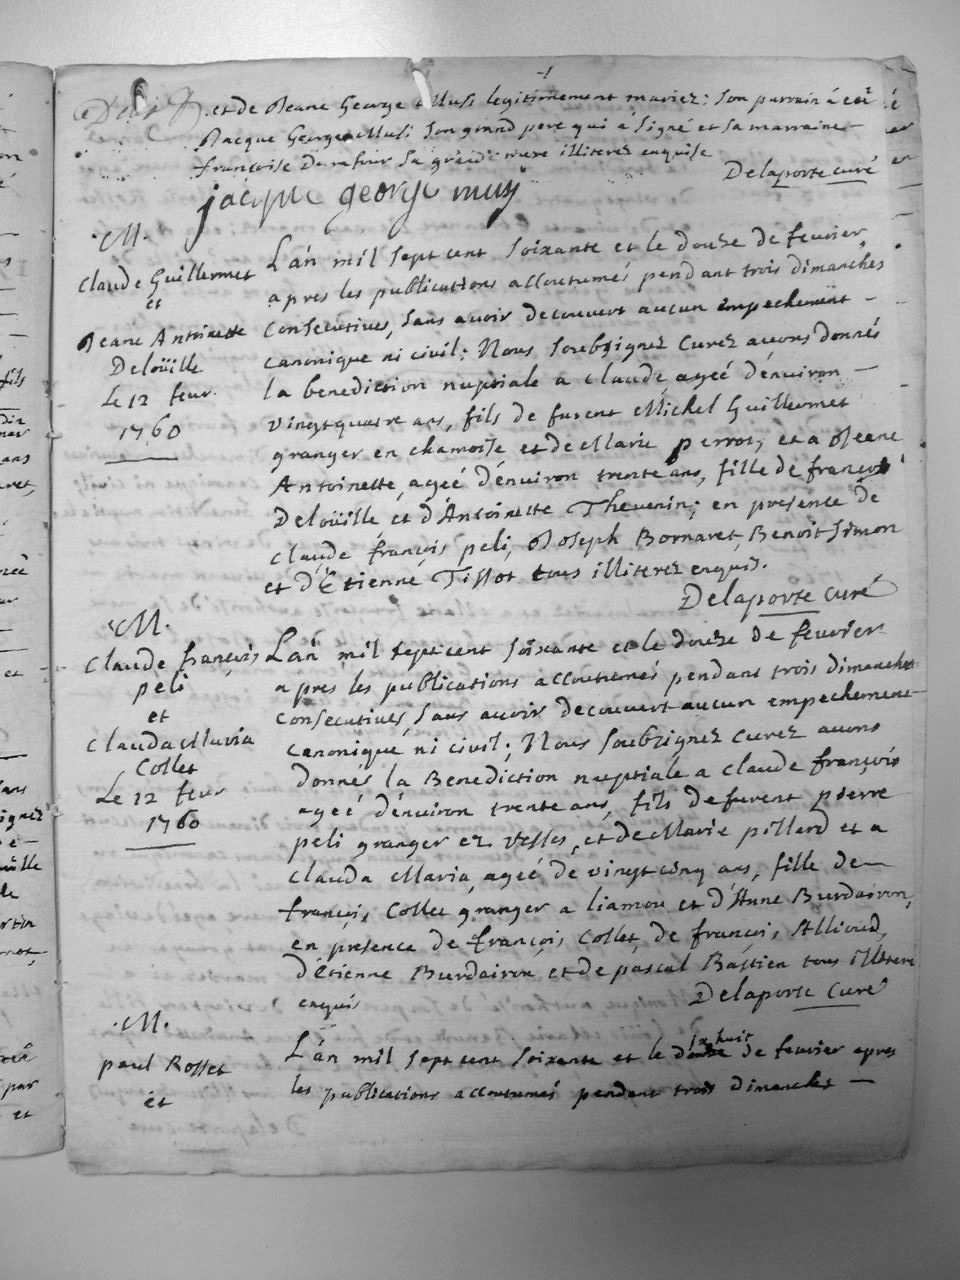 et de Jeane George Musi legitimement mariez: son parrain à été
Jacque George Musi son grand pere qui à signé et sa marraine
françoise sa grande mere illiterez enquise
Delaporte curé
jacque george musy
M.
Claude Guillermet
et
Jeane Antoinette
Deloüille
Le 12 feur.
1760
L'an mil sept cent soixante et le douze de feuvrier
apres les publications accoutumés pendant trois dimanches
consecutives, sans avoir decouvert aucun empechement
canonique ni civil; Nous soubsignez Curez avons donnés
la benediction nuptiale a claude, ageé d'énuiron
vingtquatre ans, fils de furent Michel Guillermet
granger en chamoise et de Marie perrot, et a Jeane
Antoinette, ageé d'énuiron trente ans, fille de françois
Deloüille et d'Antoinette Thevenin; en presence de
claude françois peli, Joseph Bornaret, Benoit Simon
et d'Etienne Tissot tous illiterez enquis.
Delaporte curé
M.
Claude françois
peli
et
Clauda Maria
Collet
Le 12 feur
1760
L'an mil sept cent soixante et le douze de feuvrier
apres les publications accoutumés pendant trois dimanches
consecutives, sans avoir decouvert aucun empechement
canonique ni civil; Nous soubsignez curez avons
donnés la Benediction nuptiale a claude françois
ageé d'énuiron trente ans, fils de furent pierre
peli granger ez Vesses, et de Marie pillerd et a
clauda Maria, ageé de vingt cinq ans, fille de
françois Collet granger a liamou et d'Anne Burdairon,
en presence de françois Collet, de françois Allioud,
d'Etienne Burdairon et de pascal Bastien tous illitere
enquis
Delaporte Curé
M.
paul Rosset
et
L'an mil sept cent soixante et le dixhuit de feuvrier apres
les publications accoutumés pendant trois dimanches